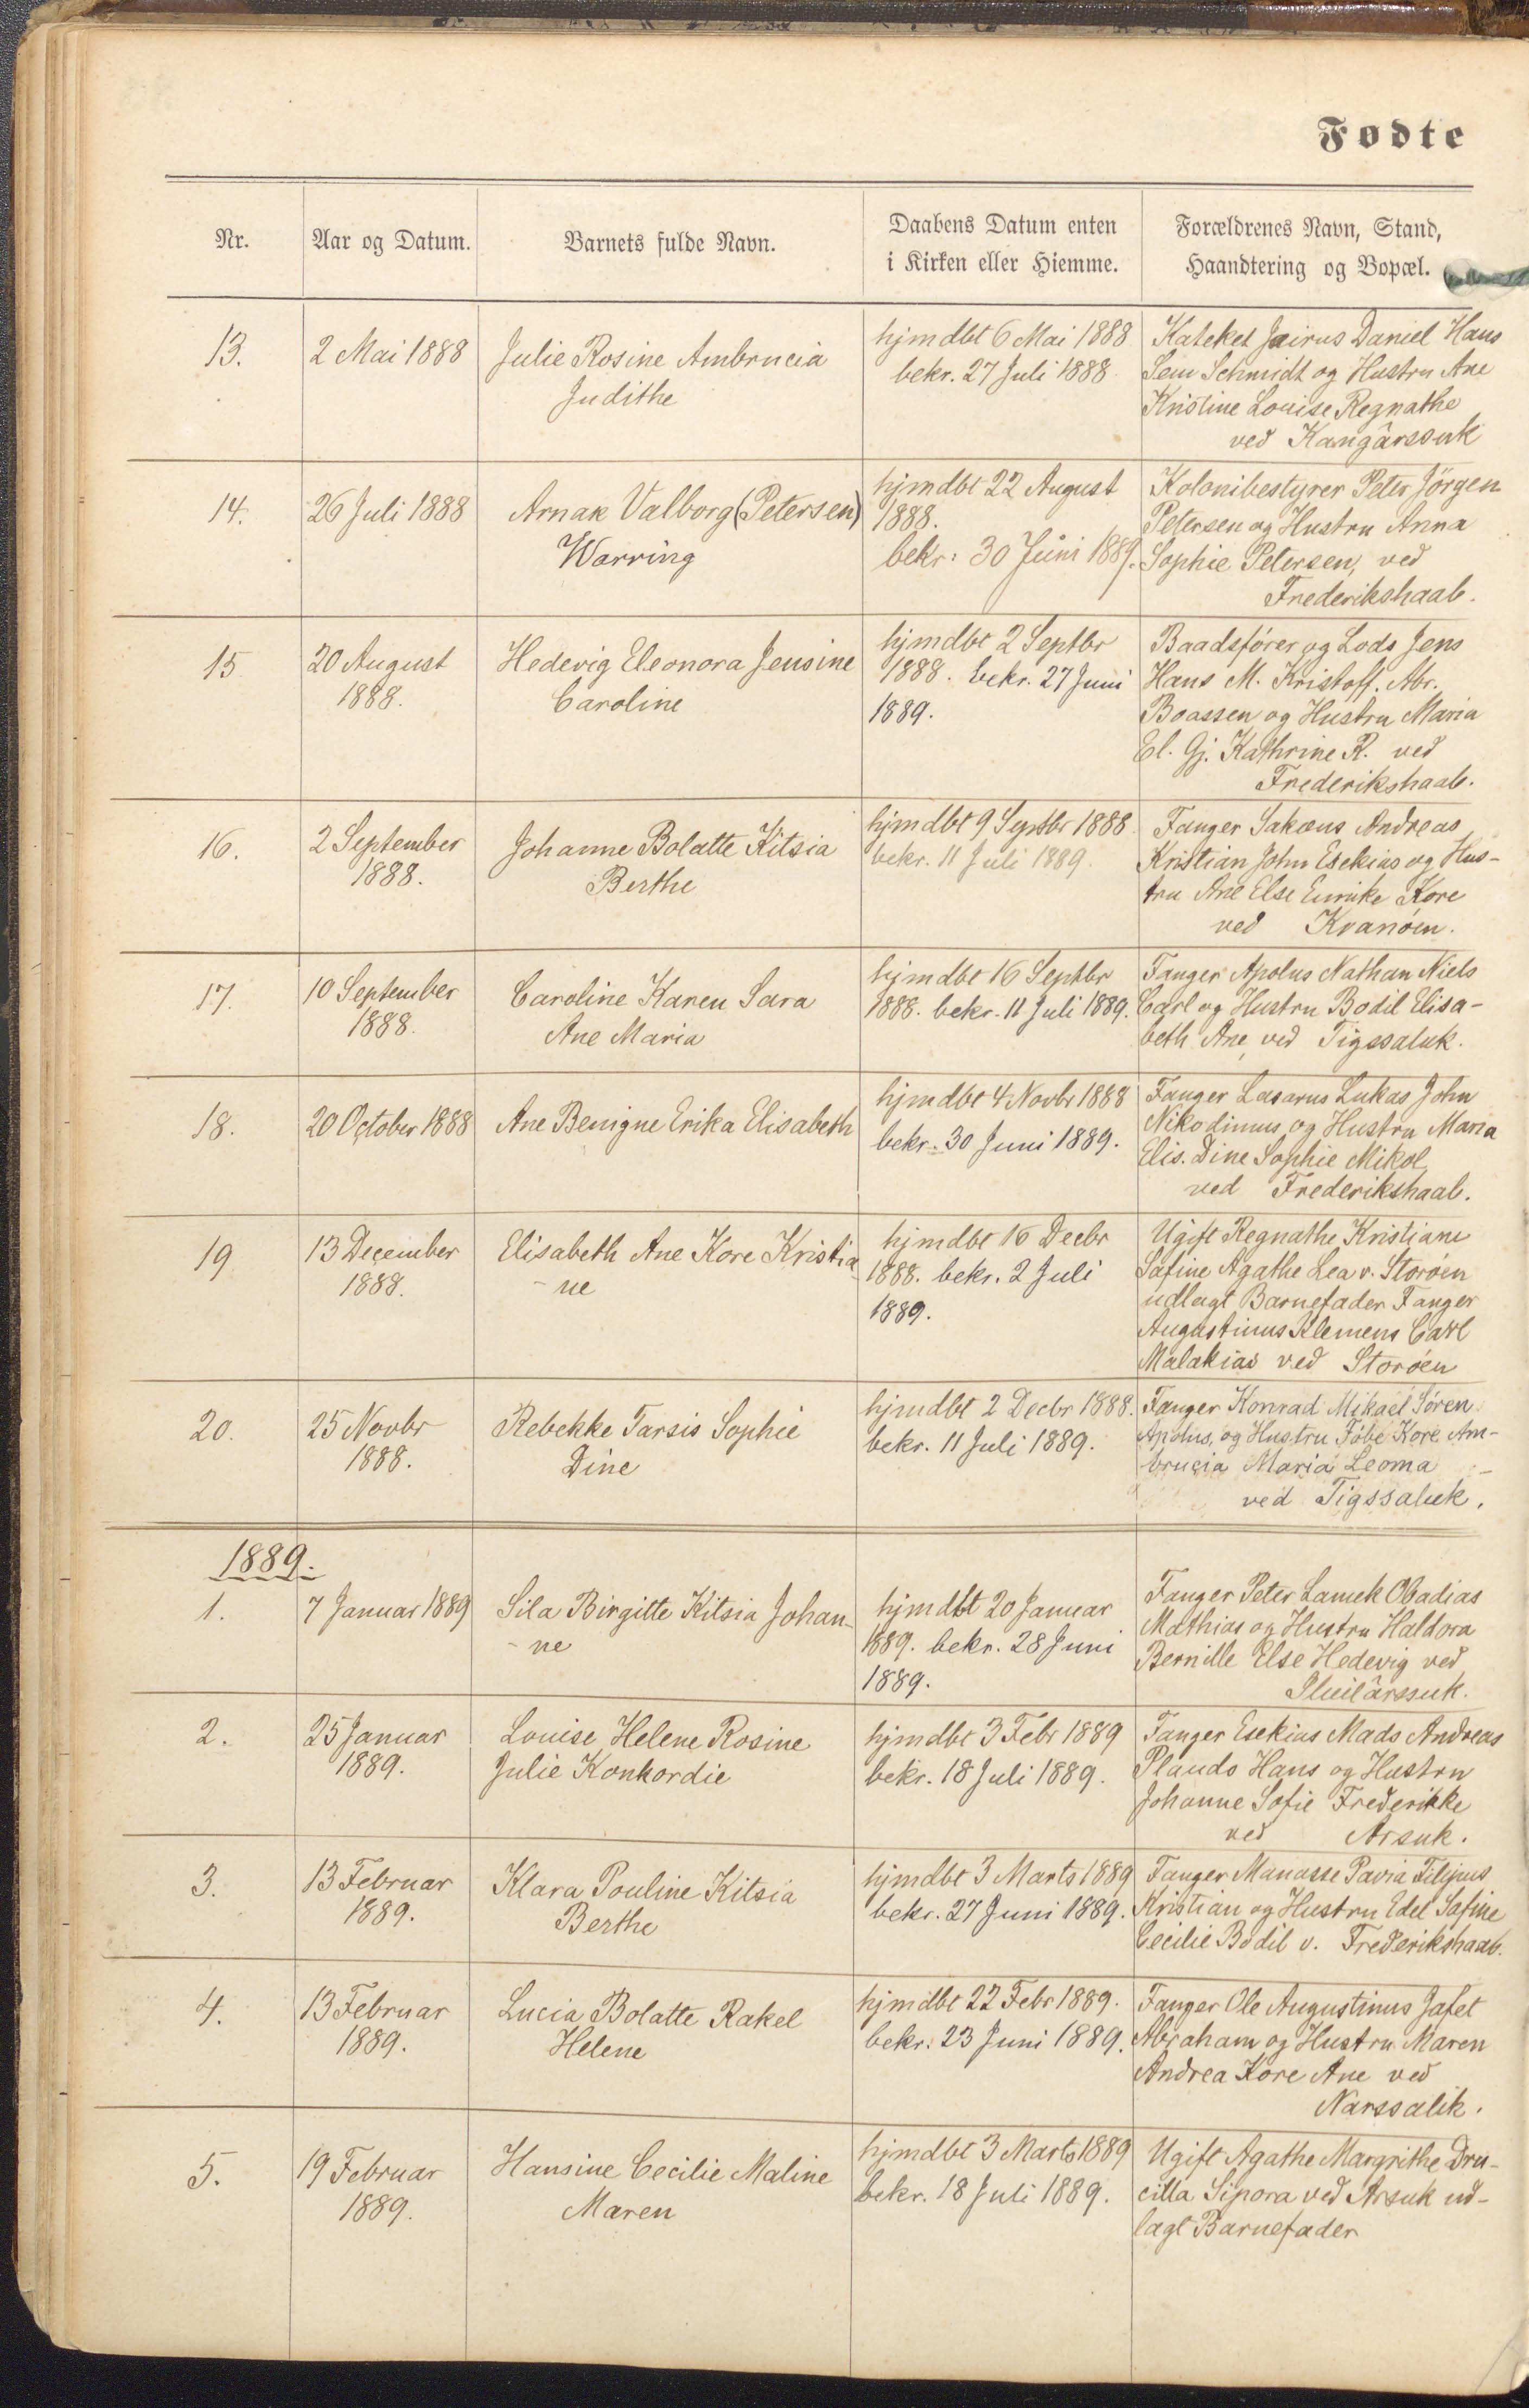 Fødte
Nr.
Aar og Datum.
Barnets fulde Navn.
Daabens Datum enten
i Kirken eller Hiemme.
Forældrenes Navn, Stand,
Haandtering og Bopæl.
13.
2 Mai 1888
Julie Rosine Ambrucia
Judithe
hjmdbt 6 Mai 1888
bekr. 27 Juli 1888
Kateket Jairus Daniel Hans
Sem Schmidt og Hustru Ane
Kristine Louise Regnathe
ved Kangârssuk
14.
26 Juli 1888
Arnak Valborg (Petersen)
Warring
hjmdbt 22 August
1888.
bekr. 30 Juni 1889.
Kolonibestyrer Peter Jörgen
Petersen og Hustru Anna
Sophie Petersen, ved
Frederikshaab.
15
20 August
1888.
Hedevig Eleonora Jensine
Caroline
hjmdbt 2 Septbr
1888. bekr. 27 Juni
1889.
Baadsförer og Lods Jens
Hans M. Kristoff. Abr.
Boassen og Hustru Maria
El. Gj. Kathrine R. ved
Frederikshaab.
16.
2 September
1888.
Johanne Bolatte Kitsia
Berthe
hjmdbt 9 Septbr 1888.
bekr. 11 Juli 1889.
Fanger Sakæus Andreas
Kristian John Esekias og Hus-
tru Ane Else Eunike Kore
ved Kvanöen.
17.
10 September
1888.
Caroline Karen Sara
Ane Maria
hjmdbt 16 Septbr
1888. bekr. 11 Juli 1889.
Fanger Apolus Nathan Niels
Carl og Hustru Bodil Elisa-
beth Ane, ved Tigssaluk.
18.
20 October 1888
Ane Benigne Erika Elisabeth
hjmdbt 4 Novbr 1888
bekr. 30 Juni 1889.
Fanger Lasarus Lukas John
Nikodimus og Hustru Maria
Elis. Dine Sophie Mikol
ved Frederikshaab.
19
13 December
1888.
Elisabeth Ane Kore Kristia
- ne
hjmdbt 16 Decbr
1888. bekr. 2 Juli
1889.
Ugift Regnathe Kristiane
Safine Agathe Lea v. Storöen
udlagt Barnefader Fanger
Augustinus Klemens Carl
Malakias ved Storöen
20.
25 Novbr
1888.
Rebekke Tarsis Sophie
Dine
hjmdbt 2 Decbr 1888.
bekr. 11 Juli 1889.
Fanger Konrad Mikael Sören
Apolus, og Hustru Föbe Kore Am-
brucia Maria Leoma
ved Tigssaluk.
1889.
1.
7 Januar 1889
Sila Birgitte Kitsia Johan-
- ne
hjmdbt 20 Januar
1889. bekr. 28 Juni
1889.
Fanger Peter Lamek Obadias
Mathias og Hustru Haldora
Bernille Else Hedevig ved
Iluilârssuk.
2.
25 Januar
1889.
Louise Helene Rosine
Julie Konkordie
hjmdbt 3 Febr 1889
bekr. 18 Juli 1889.
Fanger Esekias Mads Andreas
Plaudo Hans og Hustru
Johanne Sofie Frederikke
ved Arsuk.
3.
13 Februar
1889.
Klara Pouline Kitsia
Berthe
hjmdbt 3 Marts 1889
bekr. 27 Juni 1889.
Fanger Manasse Pavia Filipus
Kristian og Hustru Edel Safine
Cecilie Bodil v. Frederikshaab.
4.
13 Februar
1889.
Lucia Bolatte Rakel
Helene
hjmdbt 22 Febr 1889.
bekr. 23 Juni 1889.
Fanger Ole Augustinus Jafet
Abraham og Hustru Maren
Andrea Kore Ane ved
Narssalik.
5.
19 Februar
1889.
Hansine Cecilie Maline
Maren
hjmdbt 3 Marts 1889
bekr. 18 Juli 1889.
Ugift Agathe Margrithe Dru-
cilla Sipora ved Arsuk ud-
lagt Barnefader